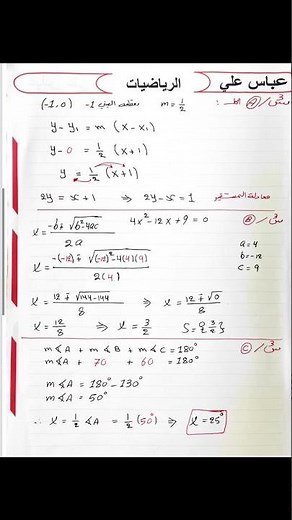 عباس علي الرياضيات
س3/ A
(-1,0) مقطعه السيني -1 m = 1/2
y - y₁ = m (x - x₁)
y - 0 = 1/2 (x + 1)
y = 1/2 (x + 1)
2y = x + 1 ⇒ 2y - x = 1 معادلة المستقيم
س3/ B
x = (-b ∓ √(b² - 4ac)) / 2a 4x² - 12x + 9 = 0
a = 4
x = (-(-12) ∓ √((-12)² - 4(4)(9))) / 2(4) b = -12
c = 9
x = (12 ∓ √(144 - 144)) / 8 ⇒ x = (12 ∓ √0) / 8
x = 12/8 ⇒ x = 3/2 S = {3/2}
س3/ C
m∢A + m∢B + m∢C = 180°
m∢A + 70 + 60 = 180°
m∢A = 180° - 130°
m∢A = 50°
∴ x = 1/2 ∢A = 1/2 (50°) ⇒ x = 25°